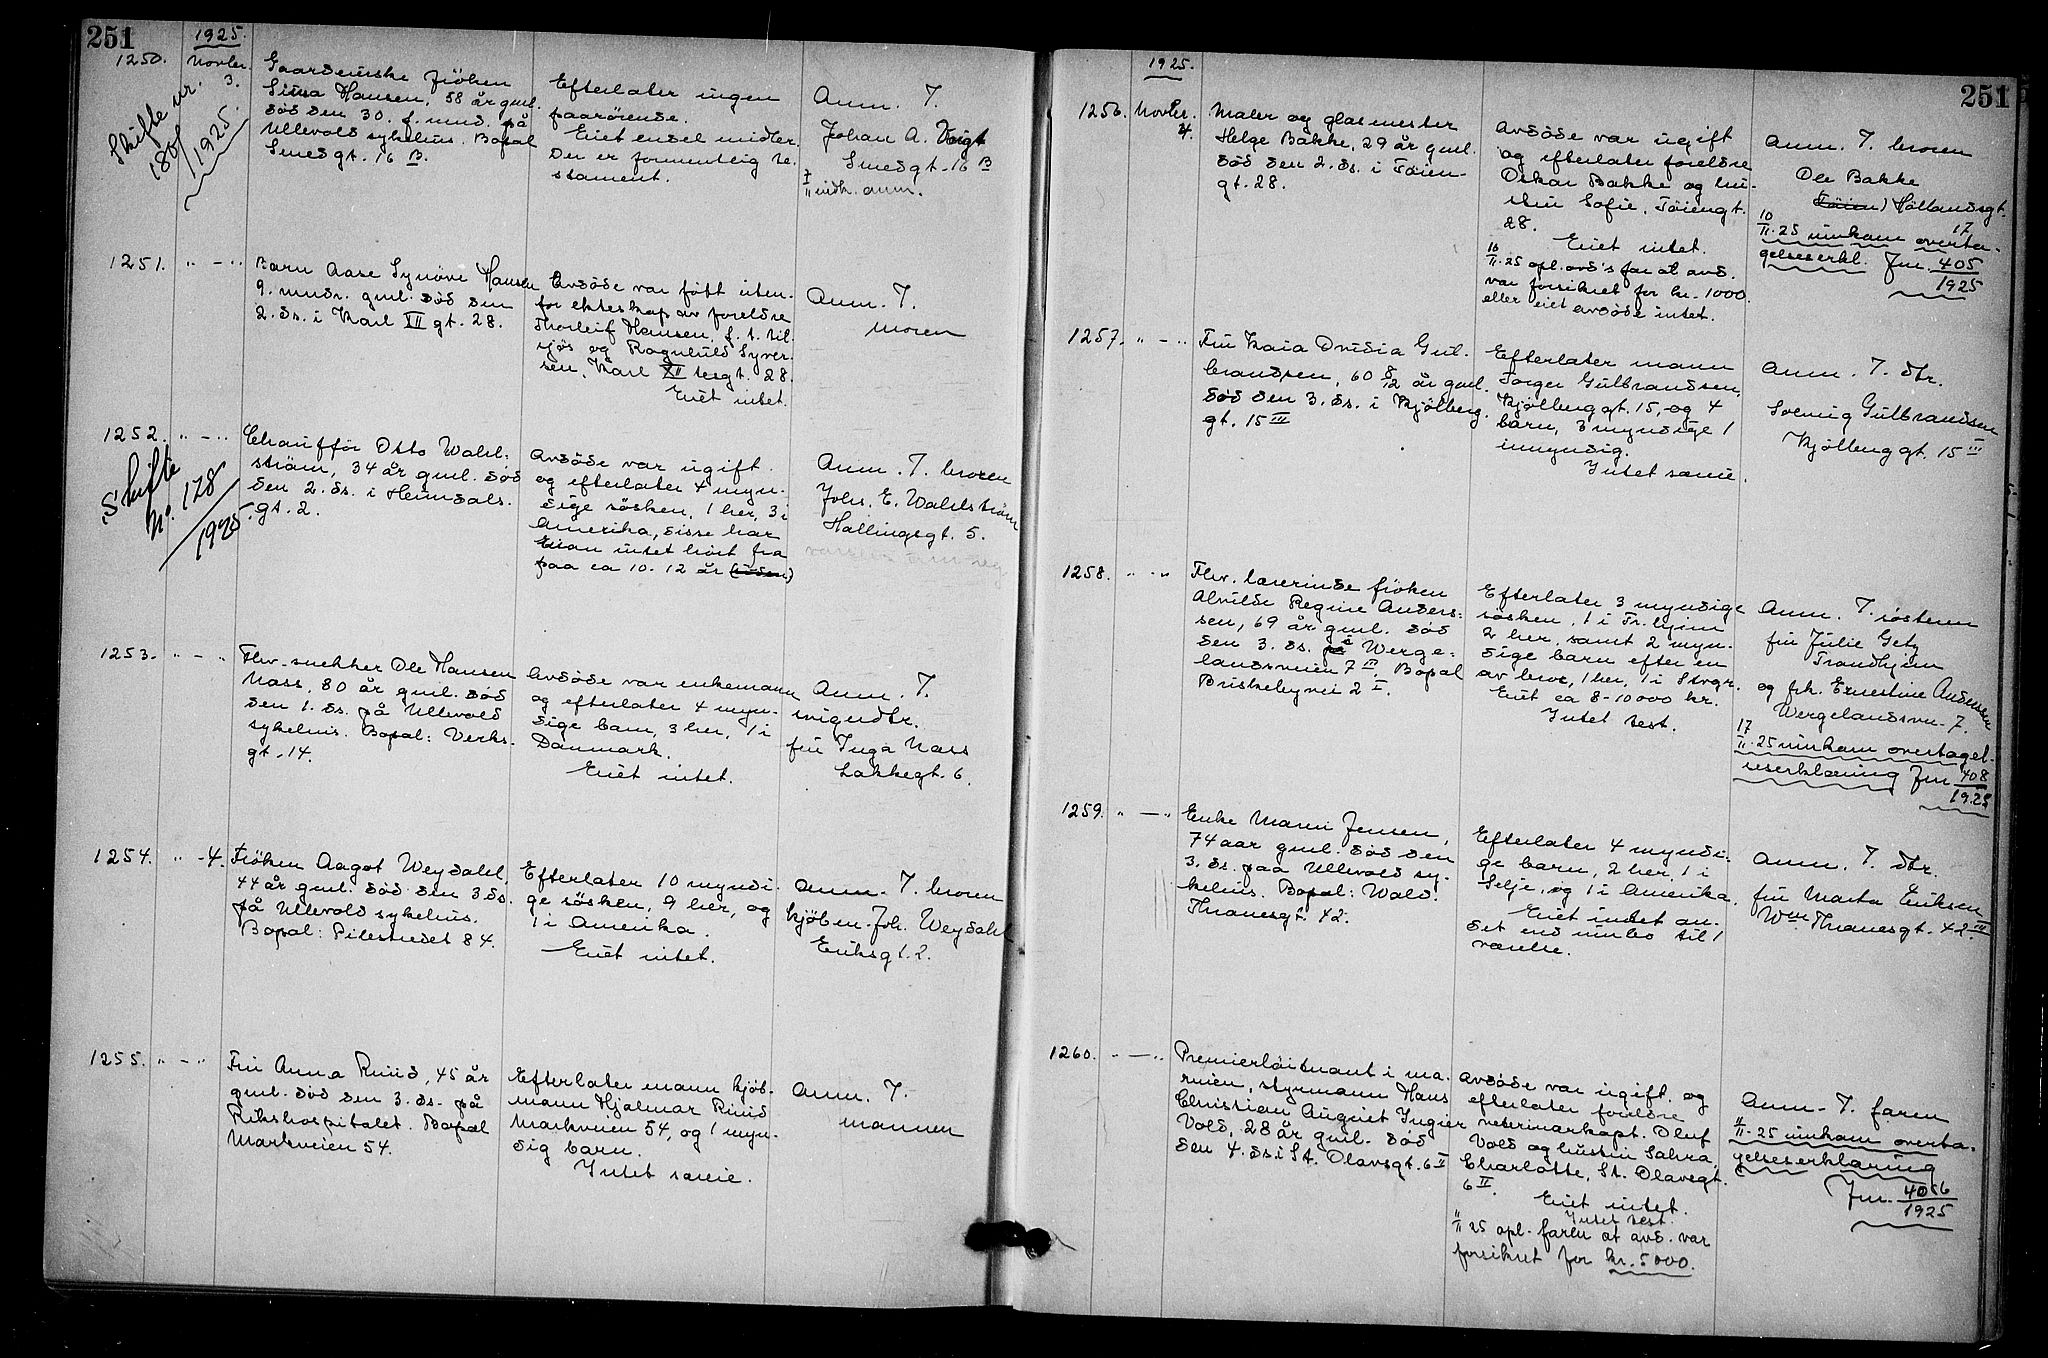 251
1925.
1250.
Novbr.
3.
Skifte nr.
180/1925.
Gaardeierske frøken
Hansen, 58 år gml.
død den 30. f. md. på
Ullevold sykehus. Bopæl
Smedgt. 16 B.
Efterlater ingen
paarørende.
Eiet endel midler.
Der er formentlig te-
stament.
Anm. T.
Johan A. Voigt
Smedgt. 16 B
7/11 indk. anm.
1251.
" - "
Barn Aase Synöve Hansen
9. mndr. gml. död den
2. ds. i Karl XII gt. 28.
Avdöde var født uten-
for ekteskap av foreldre
Thorleif Hansen, f. t. til
sjös og Ragnhild Syver-
sen, Karl XII tesgt. 28.
Eiet intet.
Anm. T.
moren
1252.
" - "
Skifte
No. 178
1925.
Chauffør Otto Wahl-
ström, 34 år gml. död
den 2. ds. i Heimdals-
gt. 2.
Avdöde var ugift.
og efterlater 4 myn-
dige søsken, 1 her, 3 i
Amerika, disse har
man intet hört fra
paa ca 10-12 år (siden)
Anm. T. broren
Johs. E. Wahlström
Hallingsgt. 5.
1253.
" - "
Fhv. snekker Ole Hansen
Nass, 80 år gml. död
den 1. ds. på Ullevold
sykehus. Bopæl: Verks-
gt. 14.
Avdöde var enkemann
og efterlater 4 myn-
dige barn, 3 her, 1 i
Danmark.
Eiet intet.
Anm. T.
svigerdtr.
fru Inga Nass
Lakkegt. 6.
1254.
" - 4.
Fröken Aagot Weydahl,
44 år gml. död den 3 ds.
på Ullevold sykehus.
Bopæl: Pilestredet 84.
Efterlater 10 myndi-
ge søsken, 9 her, og
1 i Amerika.
Eiet intet.
Anm. T. broren
kjöbm. Joh. Weydahl
Eriksgt. 2.
1255.
" - "
Fru Anna Ruud, 45 år
gml. död den 3. ds. på
Rikshospitalet. Bopæl
Markveien 54.
Efterlater mann kjöb-
mann Hjalmar Ruud
Markveien 54, og 1 myn-
dig barn.
Intet særeie.
Anm. T.
mannen
251
1925.
1256.
Novbr.
4.
Maler og glasmester
Helge Bakke, 29 år gml.
död den 2. ds. i Töien-
gt. 28.
Avdöde var ugift
og efterlater foreldre
Oskar Bakke og hu-
stru Sofie, Töiengt.
28.
Eiet intet.
10/11-25 opl. avd's far at avd.
var forsikret for kr. 1000.
eller eiet avdöde intet.
Anm. T. broren
Ole Bakke
(Töien) Hollandsgt.
17
10/11-25 innkom overta-
gelseserkl. Jnr. 405
1925
1257.
" - "
Fru Kaia Ovidia Gul-
brandsen, 60 8/12 år gml.
död den 3. ds. i Kjölberg-
gt. 15 III
Efterlater mann
Torger Gulbrandsen,
Kjölberggt. 15, og 4
barn, 3 myndige 1
umyndig.
Intet særeie.
Anm. T. dtr.
Solveig Gulbrandsen
Kjölberggt. 15 III
1258.
" - "
Fhv. lærerinde fröken
Alvilde Regine Anders-
sen, 69 år gml. död
den 3. ds. i Werge-
landsveien 7 III Bopæl
Briskebyvei 2 I.
Efterlater 3 myndige
søsken, 1 i Tr.hjem
2 her, samt 2 myn-
dige barn efter en
av bror, 1 her, 1 i Stvgr.
Eiet ca 8-10000 kr.
Intet test.
Anm. T. søsteren
fru Julie Getz
Trondhjem
og frk. Ernestine Andersen
Wergelandsvn. 7.
17/11-25 innkom overtagel-
seserklæring Jnr 408
1925
1259.
" - "
Enke Maren Jensen,
74 aar gml. död den
3. ds. paa Ullevold sy-
kehus. Bopæl: Wald.
Thranesgt. 42.
Efterlater 4 myndi-
ge barn, 2 her, 1 i
Selje, og 1 i Amerika.
Eiet intet an-
det end innbo til 1
værelse.
Anm. T. dtr.
fru Marta Eriksen
Wm. Thranesgt. 42 III
1260.
" - "
Premierlöitnant i ma-
rinen, styrmann Hans
Christian August Ingier
Vold, 28 år gml. död
den 4. ds i St. Olavsgt. 6 II
Avdöde var ugift. og
efterlater foreldre
veterinærkapt. Oluf
Vold og hustru Sahra
Charlotte, St. Olavsgt.
6 II.
Eiet intet.
Intet test.
11/11 25 opl. faren at avd. var
forsikret for kr. 5000.
Anm. T. faren
11/11-25 innkom overta-
gelseserklæring
Jnr. 4056
1925